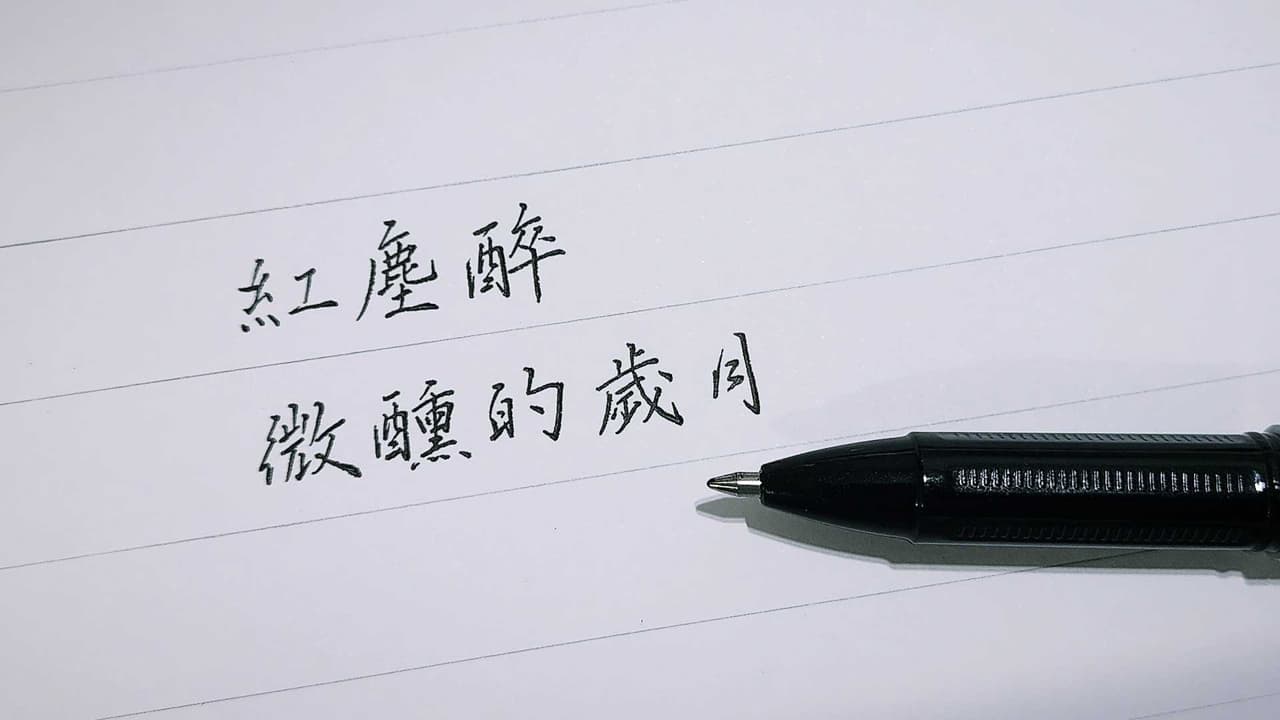 紅塵醉
微醺的歲月